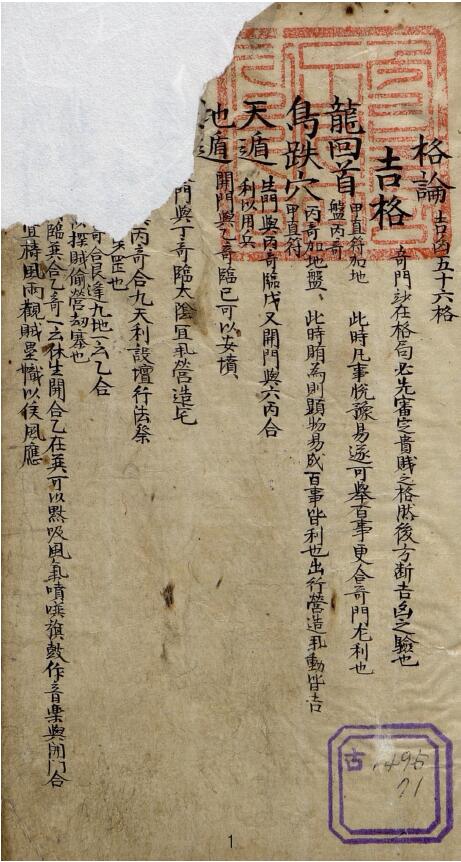 格論 吉凶五十六格
吉格 奇門玅在格局必先審定貴賎之格然後方断吉凶之驗也
龍回首 甲直符加地
盤丙奇 此時凡事悅豫易遂可舉百事更合奇門尤利也
鳥跌穴 丙奇加地盤
甲直符 此時為則顕易成百事皆利也出行營造動皆吉
天遁 生門與丙奇臨戊又開門與六丙合
利以用兵
地遁 開門與乙奇臨己可以安墳
門與丁奇臨太陰宜營造
丙奇合九天利設壇行法祭
罡也
奇合艮逢九地一云乙合
賊偷營刧寨也
臨巽合乙奇一云休生開合乙在巽可以吸風氣噴唾旗鼓作音樂與閉門合
宜禱風雨觀賊壘幟以侯風應
古 495
21
1